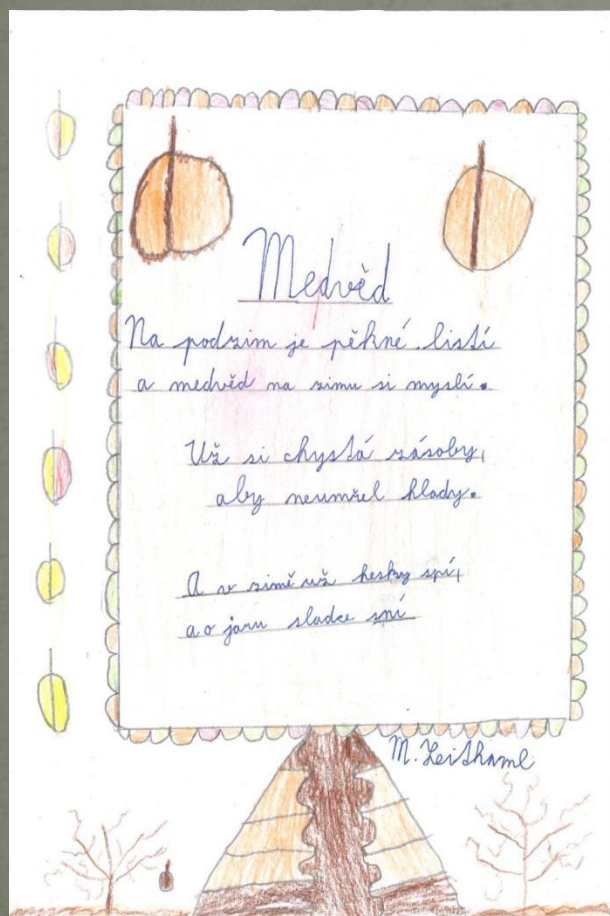 Medvěd
Na podzim je pěkné listí
a medvěd na zimu si myslí.
Už si chystá zásoby,
aby neumřel hlady.
A v zimě už hezky spí,
a o jaru sladce sní
M. Leithaml